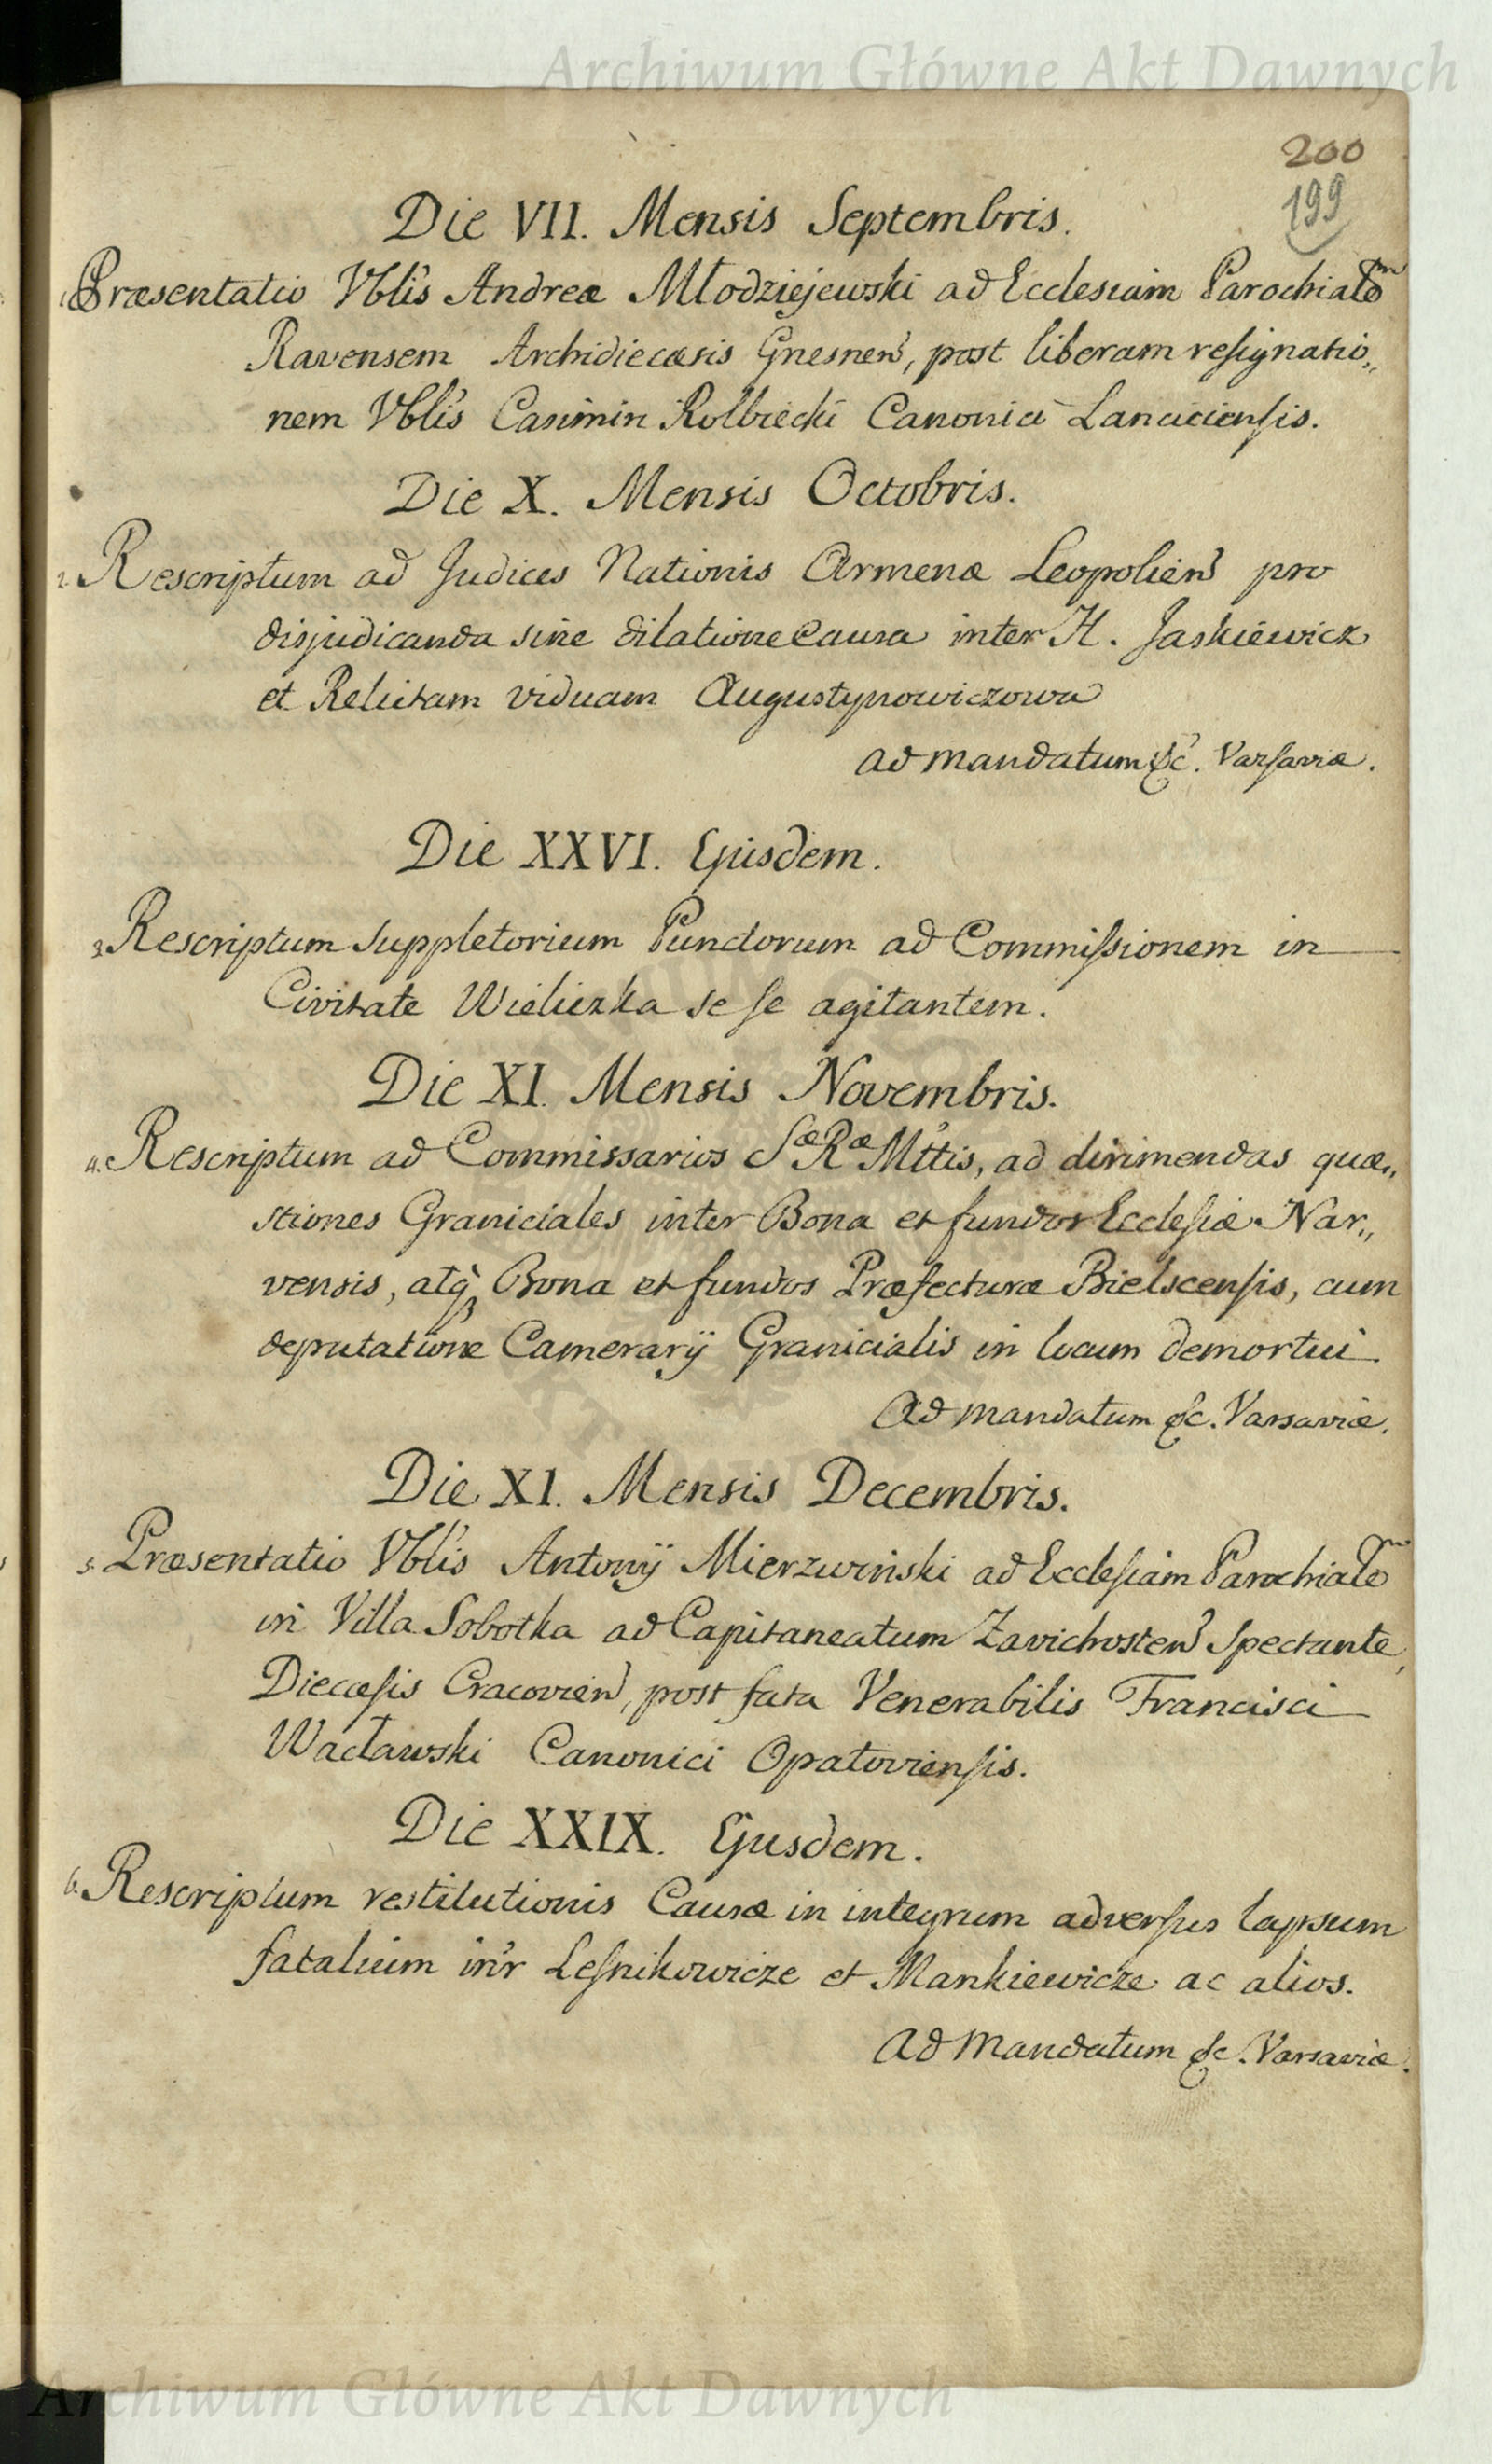 Archiwum Główne Akt Dawnych
200
199
Die VII. Mensis Septembris.
1. Præsentatio Vblis Andreæ Młodziejewski ad Ecclesiam Parochialem
Ravensem Archidiecæsis Gnesnen, post liberam resignatio„
nem Vblis Casimiri Rolbiecki Canonici Lanciciensis.
Die X. Mensis Octobris.
2. Rescriptum ad Judices Nationis Armenæ Leopolien pro
disjudicanda sine dilatione Causa inter H. Jaskiewicz
et Relictam viduam Augustynowiczowa
Ad mandatum &c. Varsaviæ.
Die XXVI. Ejusdem.
3. Rescriptum suppletorium Punctorum ad Commissionem in
Civitate Wieliczka se se agitantem.
Die XI. Mensis Novembris.
4. Rescriptum ad Commissarios Sæ Ræ Mttis, ad dirimendas quæ„
stiones Graniciales inter Bona et fundos Ecclesiæ Nar„
vensis, atq Bona et fundos Præfecturæ Bielscensis, cum
deputatione Camerarij Granicialis in locum demortui
Ad mandatum &c. Varsaviæ.
Die XI. Mensis Decembris.
5. Præsentatio Vblis Antonij Mierzwiński ad Ecclesiam Parochialem
in Villa Sobotka ad Capitaneatum Zavichosten spectante,
Diecæsis Cracovien, post fata Venerabilis Francisci
Wacławski Canonici Opatoviensis.
Die XXIX. Ejusdem.
6. Rescriptum restitutionis Causæ in integrum adversus lapsum
fatalium intr Lesnikowicze et Mankiewicze ac alios.
Ad Mandatum &c. Varsaviæ.
Archiwum Główne Akt Dawnych